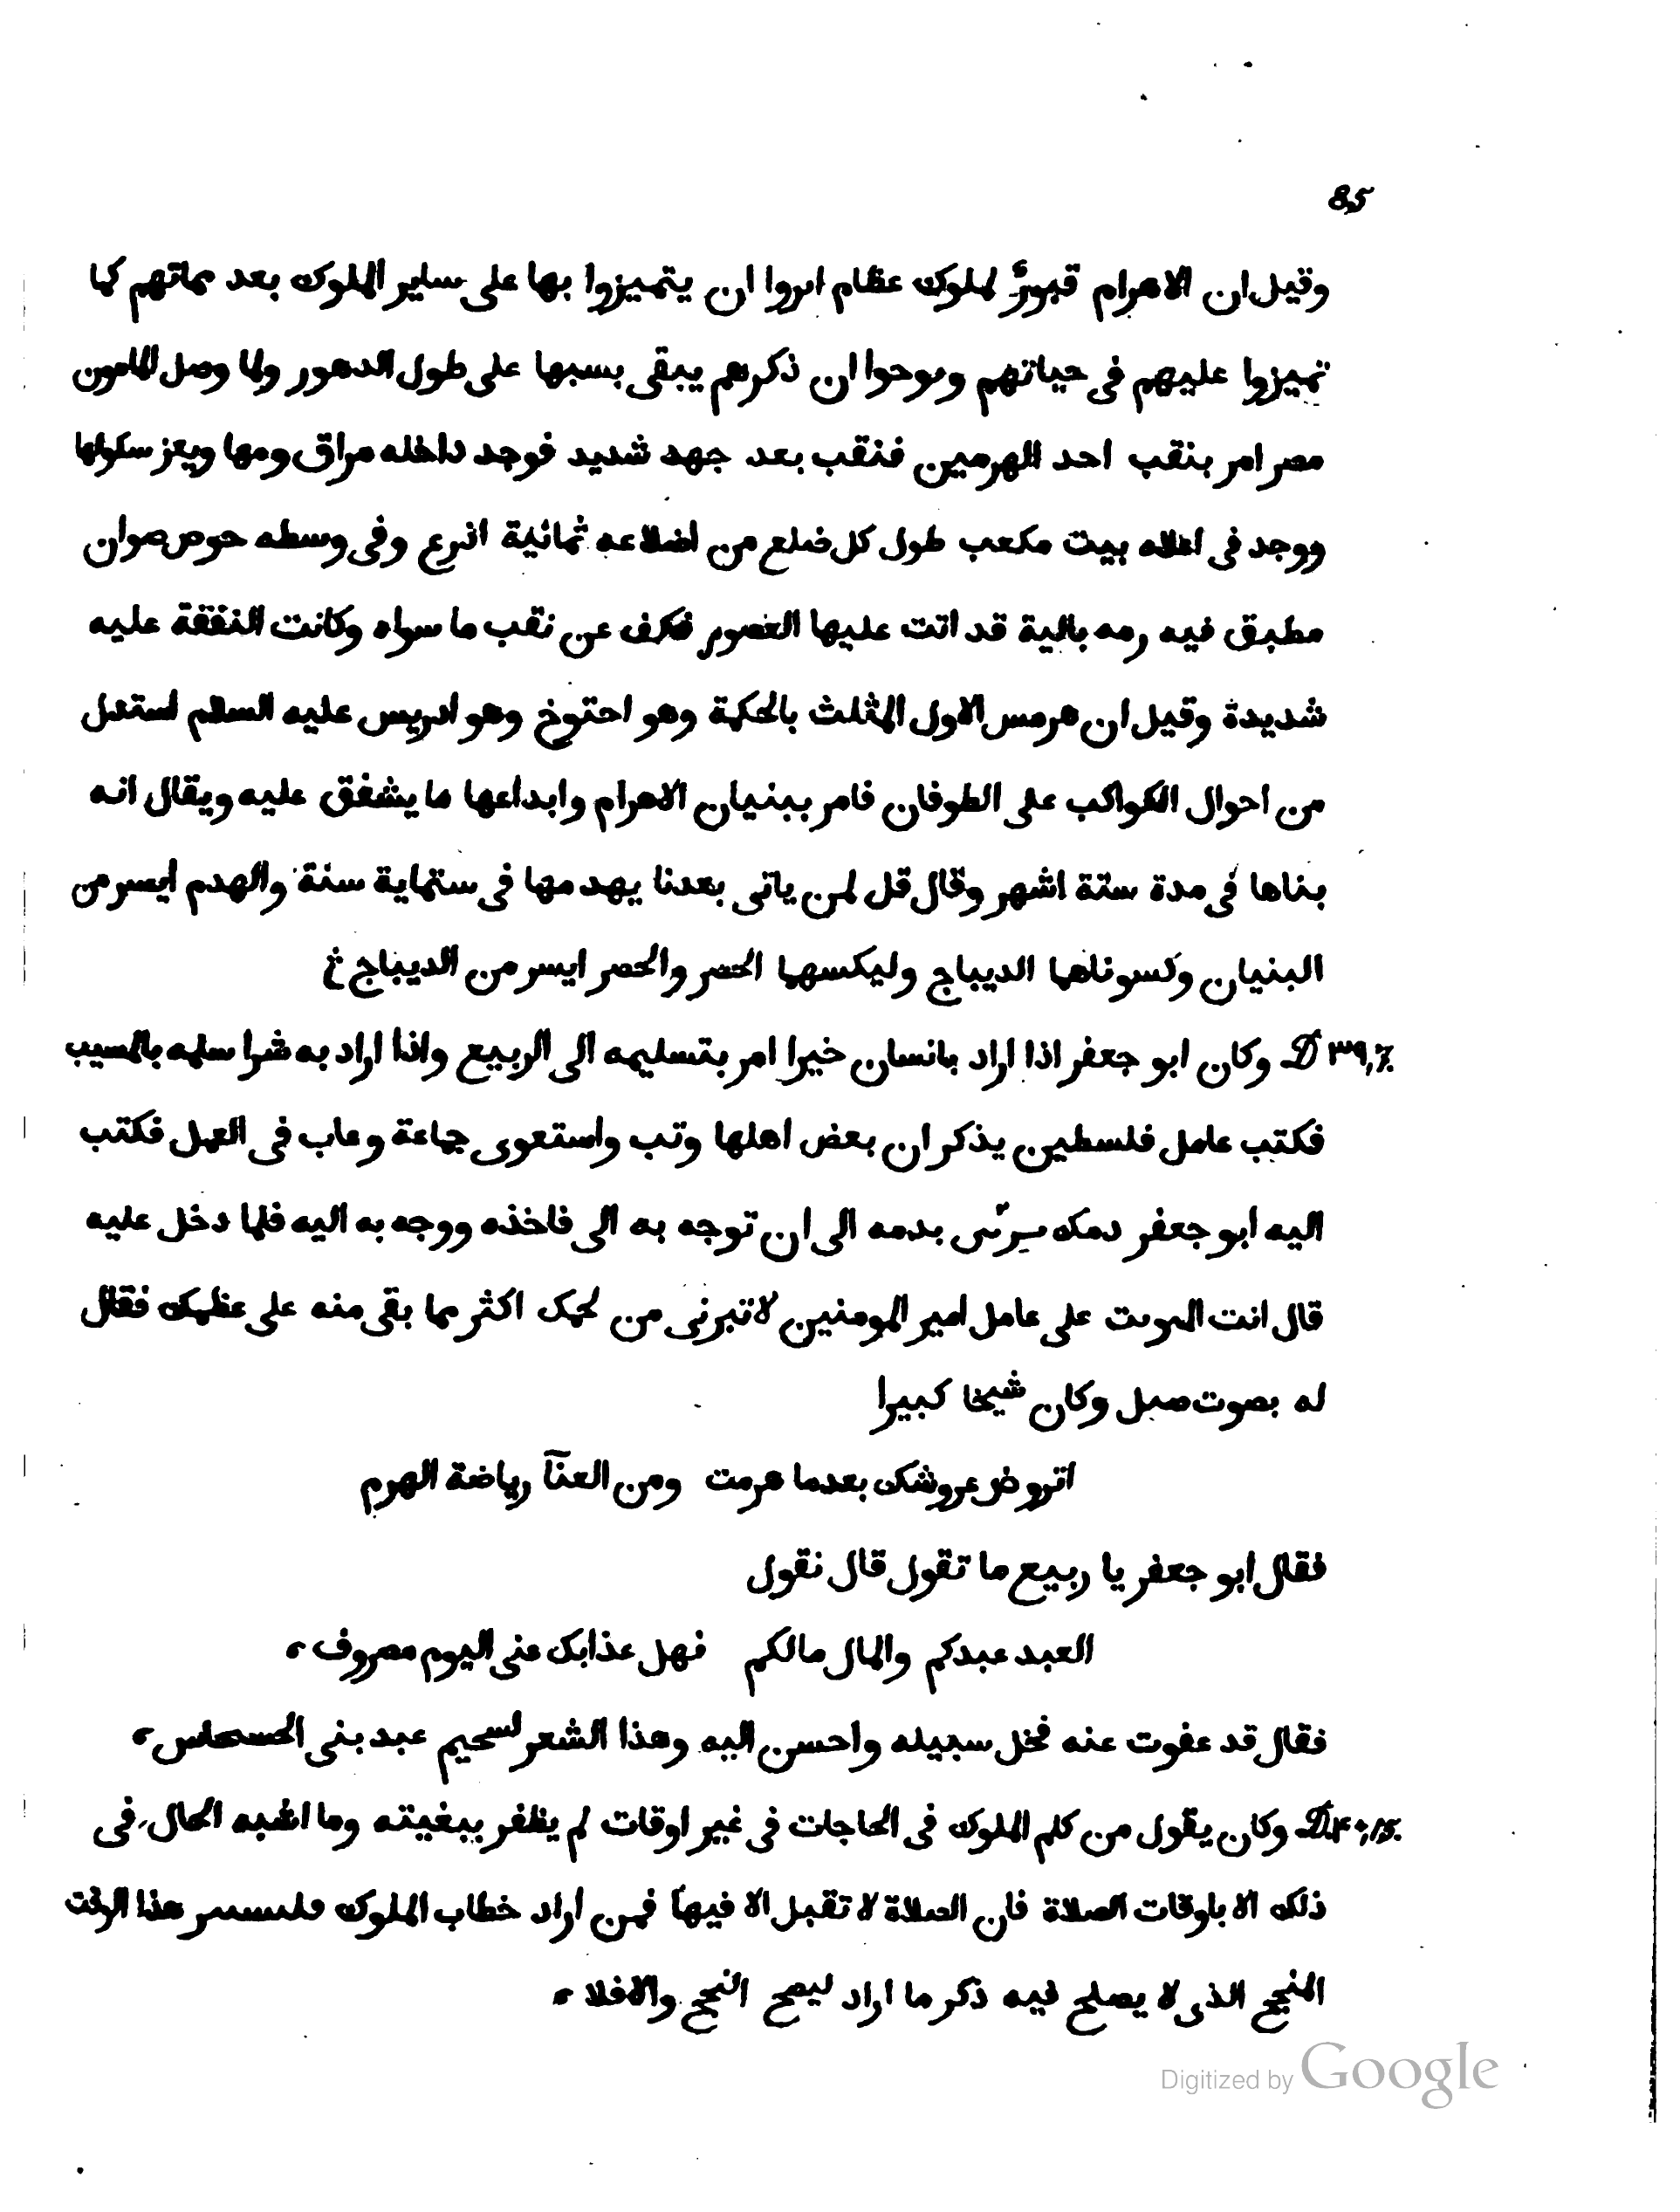 85
وقيل ان الاهرام قبورٌ لملوك عظام اىروا ان يتميزوا بها على ساير الملوك بعد مماتهم كما
تميزوا عليهم فى حياتهم وىوحوا ان ذكرهم يبقى بسبها على طول الدهور ولما وصل المامون
مصر امر بنقب احد الهرمين فنقب بعد جهد شديد فوجد داخله مراق ومها ويعز سلولها
ووجد فى اعلاه بيت مكعب طول كل ضلع من اضلاعه ثمانية اذرع وفى وسطه حوض صوان
مطبق فيه رمه بالية قد اتت عليها العصور فكف عن نقب ما سواه وكانت النفقة عليه
شديدة وقيل ان هرمس الاول المثلث بالحكمة وهو احتوخ وهو ادريس عليه السلام استدل
من احوال الكواكب على الطوفان فامر ببنيان الاهرام وابداعها ما يشفق عليه ويقال انه
بناها فى مدة ستة اشهر وقال قل لمن ياتى بعدنا يهدمها فى ستماية سنة والهدم ايسر من
البنيان وكسوناهما الديباج وليكسهما الحصر والحصر ايسر من الديباج
D ٣٩, وكان ابو جعفر اذا اراد بانسان خيرا امر بتسليمه الى الربيع واذا اراد به شرا سلمه بالمسيب
فكتب عامل فلسطين يذكر ان بعض اهلها وتب واستعوى جماعة وعاب فى العمل فكتب
اليه ابو جعفر دمك بدمه الى ان توجه به الى فاخذه ووجه به اليه فلما دخل عليه
قال انت على عامل امير المومنين لاتبرنى من لحمك اكثر مما بقى منه على عظمك فقال
له بصوت صىل وكان شيخا كبيرا
اتروض عروشك بعدما هرمت ومن العنآ رياضة الهرم
فقال ابو جعفر يا ربيع ما تقول قال نقول
العبد عبدكم والمال مالكم فهل عذابك عنى اليوم مصروف
فقال قد عفوت عنه فخل سبيله واحسن اليه وهذا الشعر لسحيم عبد بنى الحسحاس
D ٤٠, وكان يقول من كلم الملوك فى الحاجات فى غير اوقات لم يظفر ببغيته وما اشبه الحال فى
ذلك الا باوقات الصلاة فان الصلاة لا تقبل الا فيها فمن اراد خطاب الملوك هذا الوقت
المنجح الذى لا يصلح فيه ذكر ما اراد ليصح النجح والا فلا
Digitized by Google